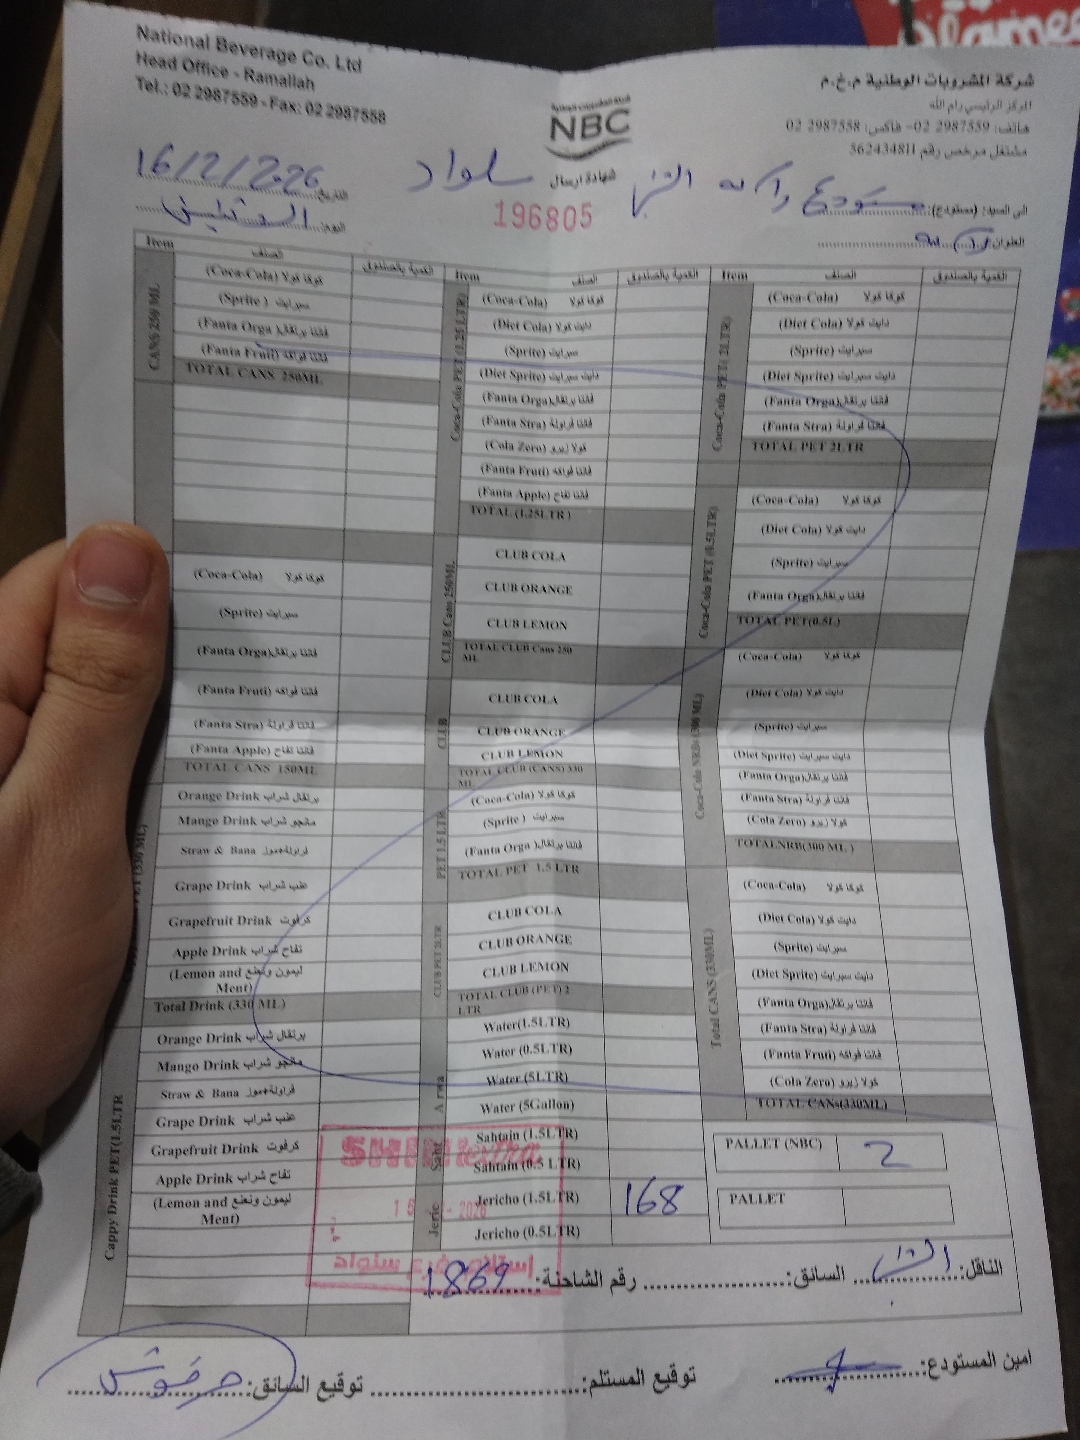 National Beverage Co. Ltd
Head Office - Ramallah
Tel.: 02 2987559 - Fax: 02 2987558
شركة المشروبات الوطنية م.خ.م
المركز الرئيسي رام الله
هاتف: 2987559 02- فاكس: 2987558 02
مشتغل مرخص رقم 562434811
NBC
شهادة ارسال
196805
سلواد
التاريخ: 16/2/2026
اليوم: الاثنين
الى السيد: (مستودع):
العنوان:
Item الصنف الكمية بالصندوق
CANS 250 ML
(Coca-Cola) كوكا كولا
(Sprite) سبرايت
(Fanta Orga) فانتا برتقال
(Fanta Fruit) فانتا فواكه
TOTAL CANS 250ML
(Coca-Cola) كوكا كولا
(Sprite) سبرايت
(Fanta Orga) فانتا برتقال
(Fanta Fruti) فانتا فواكه
(Fanta Stra) فانتا فراولة
(Fanta Apple) فانتا تفاح
TOTAL CANS 150ML
Orange Drink برتقال شراب
Mango Drink مانجو شراب
Straw & Bana فراولة+موز
Grape Drink عنب شراب
Grapefruit Drink كرفوت
Apple Drink تفاح شراب
(Lemon and Ment) ليمون ونعنع
Total Drink (330 ML)
Cappy Drink PET(1.5LTR
Orange Drink برتقال شراب
Mango Drink مانجو شراب
Straw & Bana فراولة+موز
Grape Drink عنب شراب
Grapefruit Drink كرفوت
Apple Drink تفاح شراب
(Lemon and Ment) ليمون ونعنع
Item الصنف الكمية بالصندوق
Coca-Cola PET (1.25 LTR)
(Coca-Cola) كوكا كولا
(Diet Cola) دايت كولا
(Sprite) سبرايت
(Diet Sprite) دايت سبرايت
(Fanta Orga) فانتا برتقال
(Fanta Stra) فانتا فراولة
(Cola Zero) كولا زيرو
(Fanta Fruti) فانتا فواكه
(Fanta Apple) فانتا تفاح
TOTAL (1.25LTR )
CLUB Cans 250ML
CLUB COLA
CLUB ORANGE
CLUB LEMON
TOTAL CLUB Cans 250 ML
CLUB
CLUB COLA
CLUB ORANGE
CLUB LEMON
TOTAL CLUB (CANS) 330 ML
PET 1.5 LTR
(Coca-Cola) كوكا كولا
(Sprite ) سبرايت
(Fanta Orga ) فانتا برتقال
TOTAL PET 1.5 LTR
CLUB PET 2LTR
CLUB COLA
CLUB ORANGE
CLUB LEMON
TOTAL CLUB (PET) 2 LTR
Arwa
Water(1.5LTR)
Water (0.5LTR)
Water (5LTR)
Water (5Gallon)
Saht
Sahtain (1.5LTR)
Sahtain (0.5 LTR)
Jeric
Jericho (1.5LTR) 168
Jericho (0.5LTR)
Item الصنف الكمية بالصندوق
Coca-Cola PET( 2LTR)
(Coca-Cola) كوكا كولا
(Diet Cola) دايت كولا
(Sprite) سبرايت
(Diet Sprite) دايت سبرايت
(Fanta Orga) فانتا برتقال
(Fanta Stra) فانتا فراولة
TOTAL PET 2LTR
Coca-Cola PET (0.5LTR)
(Coca-Cola) كوكا كولا
(Diet Cola) دايت كولا
(Sprite) سبرايت
(Fanta Orga) فانتا برتقال
TOTAL PET(0.5L)
Coca-Cola NRB (300 ML)
(Coca-Cola) كوكا كولا
(Diet Cola) دايت كولا
(Sprite) سبرايت
(Diet Sprite) دايت سبرايت
(Fanta Orga) فانتا برتقال
(Fanta Stra) فانتا فراولة
(Cola Zero) كولا زيرو
TOTALNRB(300 ML )
Total CANS (330ML)
(Coca-Cola) كوكا كولا
(Diet Cola) دايت كولا
(Sprite) سبرايت
(Diet Sprite) دايت سبرايت
(Fanta Orga) فانتا برتقال
(Fanta Stra) فانتا فراولة
(Fanta Fruti) فانتا فواكه
(Cola Zero) كولا زيرو
TOTAL CANs(330ML)
PALLET (NBC) 2
PALLET
الناقل: السائق: رقم الشاحنة: 1869
امين المستودع: توقيع المستلم: توقيع السائق: